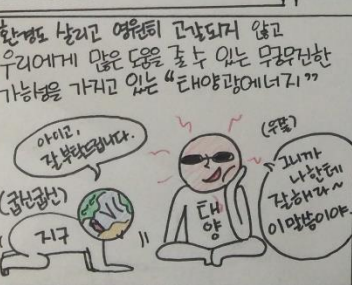 환경도 살리고 영원히 고갈되지 않고
우리에게 많은 도움을 줄 수 있는 무궁무진한
가능성을 가지고 있는 “태양광에너지”
아이고,
잘 부탁드립니다.
(굽신굽신)
지구
태
양
(우쭐)
그니까
나한테
잘해라~
이말씀이야.